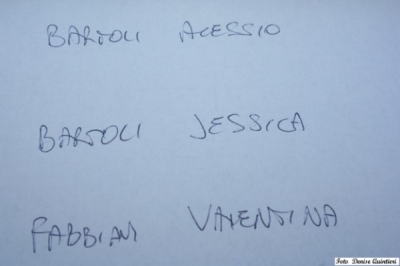 BARTOLI ALESSIO
BARTOLI JESSICA
FABBIANI VALENTINA
Foto Denise Quintieri